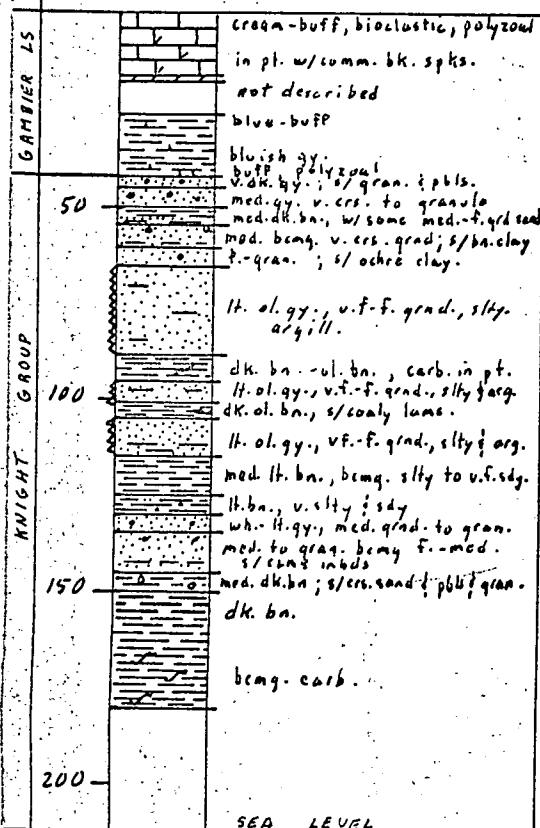 GAMBIER LS
cream-buff, bioclastic, polyzoal
in pt. w/comm. bk. spks.
not described
blue-buff
bluish gy.
buff polyzoal
KNIGHT GROUP
v.dk.gy.; s/ gran. & pbls.
50
med.gy. v.crs. to granule
med.dk.bn., w/some med.-f.grd sand
med. bcmg. v.crs. grnd; s/bn.clay
f.-gran. ; s/ ochre clay.
lt. ol.gy., v.f-f. grnd., slty.
argill.
dk. bn.-ol. bn., carb. in pt.
lt. ol.gy., v.f.-f. grnd., slty & arg.
100
dk. ol. bn., s/coaly lams.
lt. ol.gy., vf.-f. grnd., slty & arg.
med. lt. bn., bcmg. slty to v.f.sdy.
lt.bn., v.slty & sdy
wh.-lt.gy., med. grnd. to gran.
med. to gran. bcmg f.-med.
inbds
150
med. dk.bn; s/crs.sand & pbls & gran.
dk. bn.
bcmg. carb.
200
SEA LEVEL